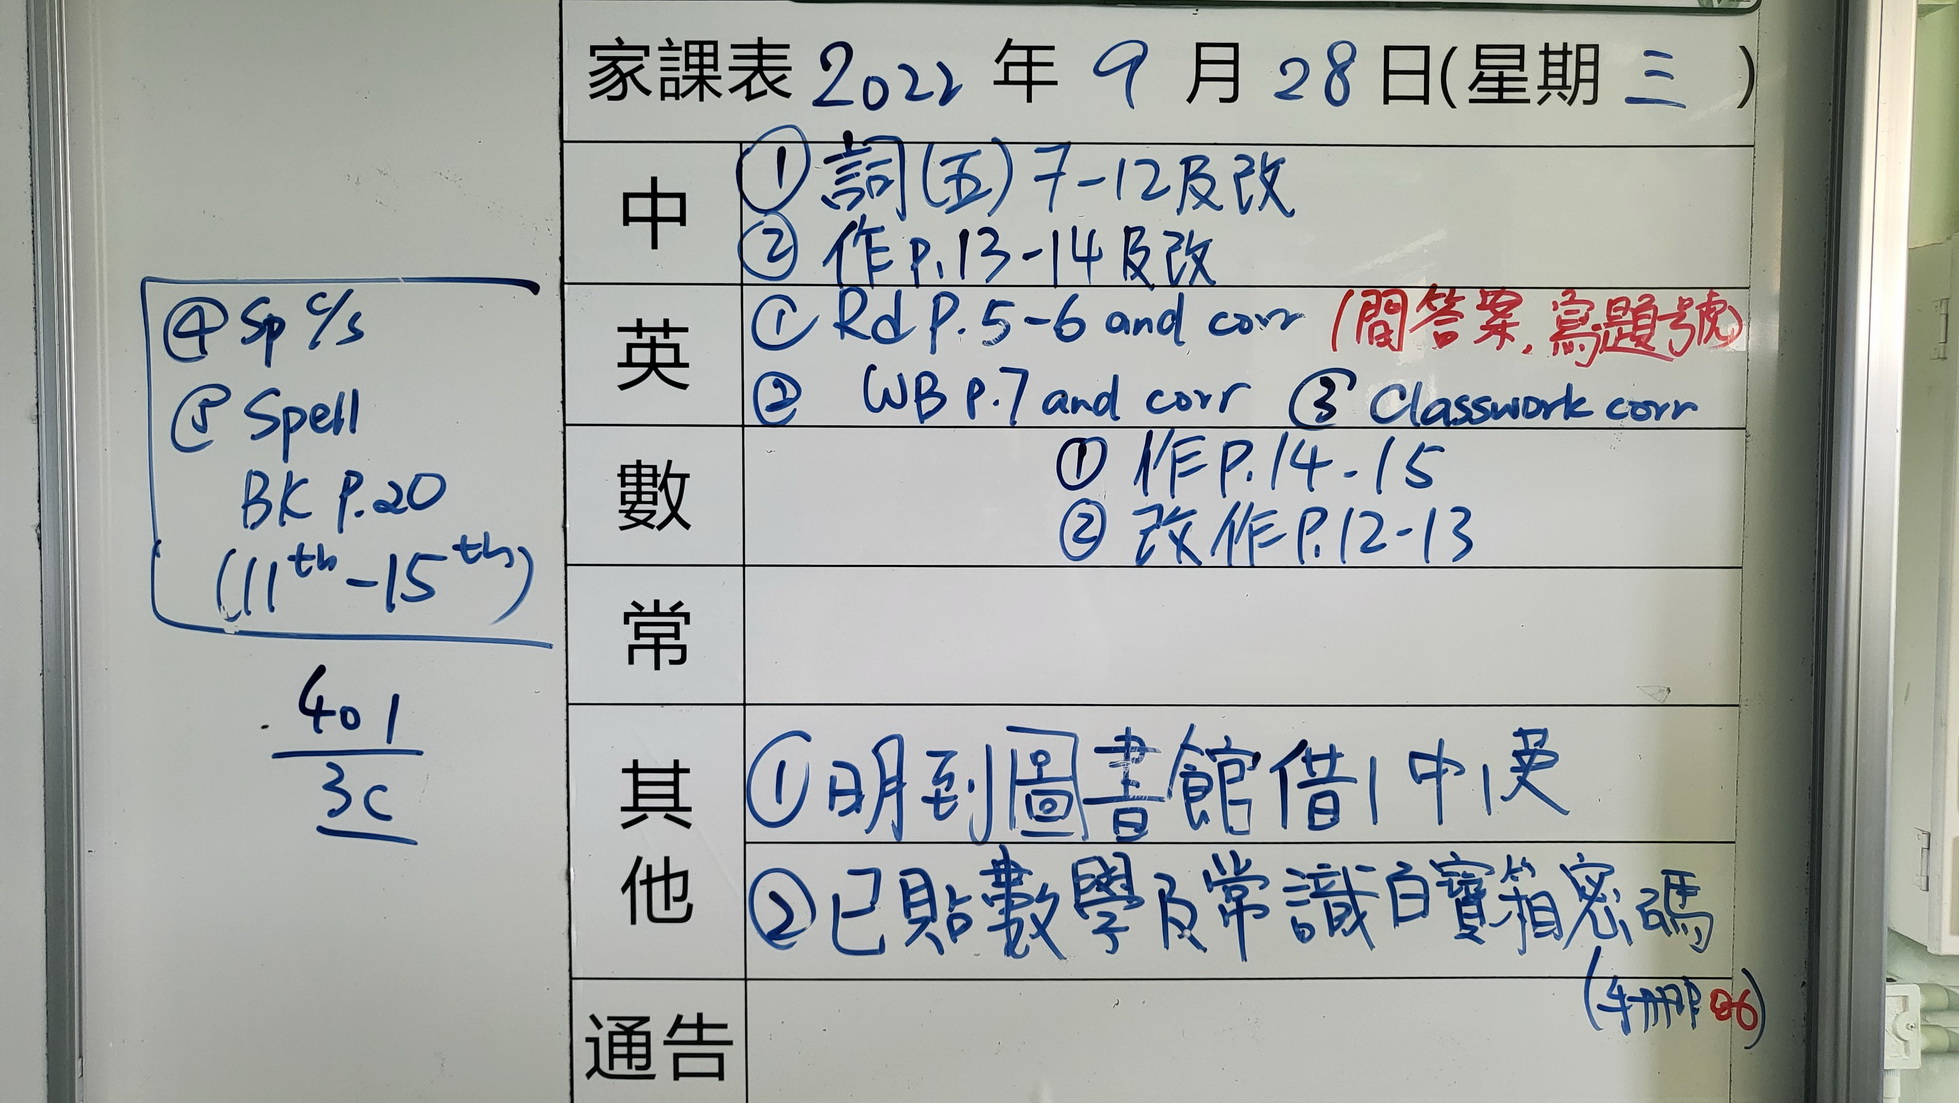 家課表 2022 年 9 月 28 日(星期 三 )
中
① 詞(五) 7-12及改
② 作 P.13-14及改
英
① Rd P.5-6 and corr (間答案,寫題號)
② WB P.7 and corr ③ Classwork corr
④ Sp c/s
⑤ Spell
BK P.20
(11th-15th)
數
① 作 P.14-15
② 改作 P.12-13
常
其他
① 明到圖書館借1中1英
② 已貼數學及常識百寶箱密碼
(手冊P
通告
401
3C